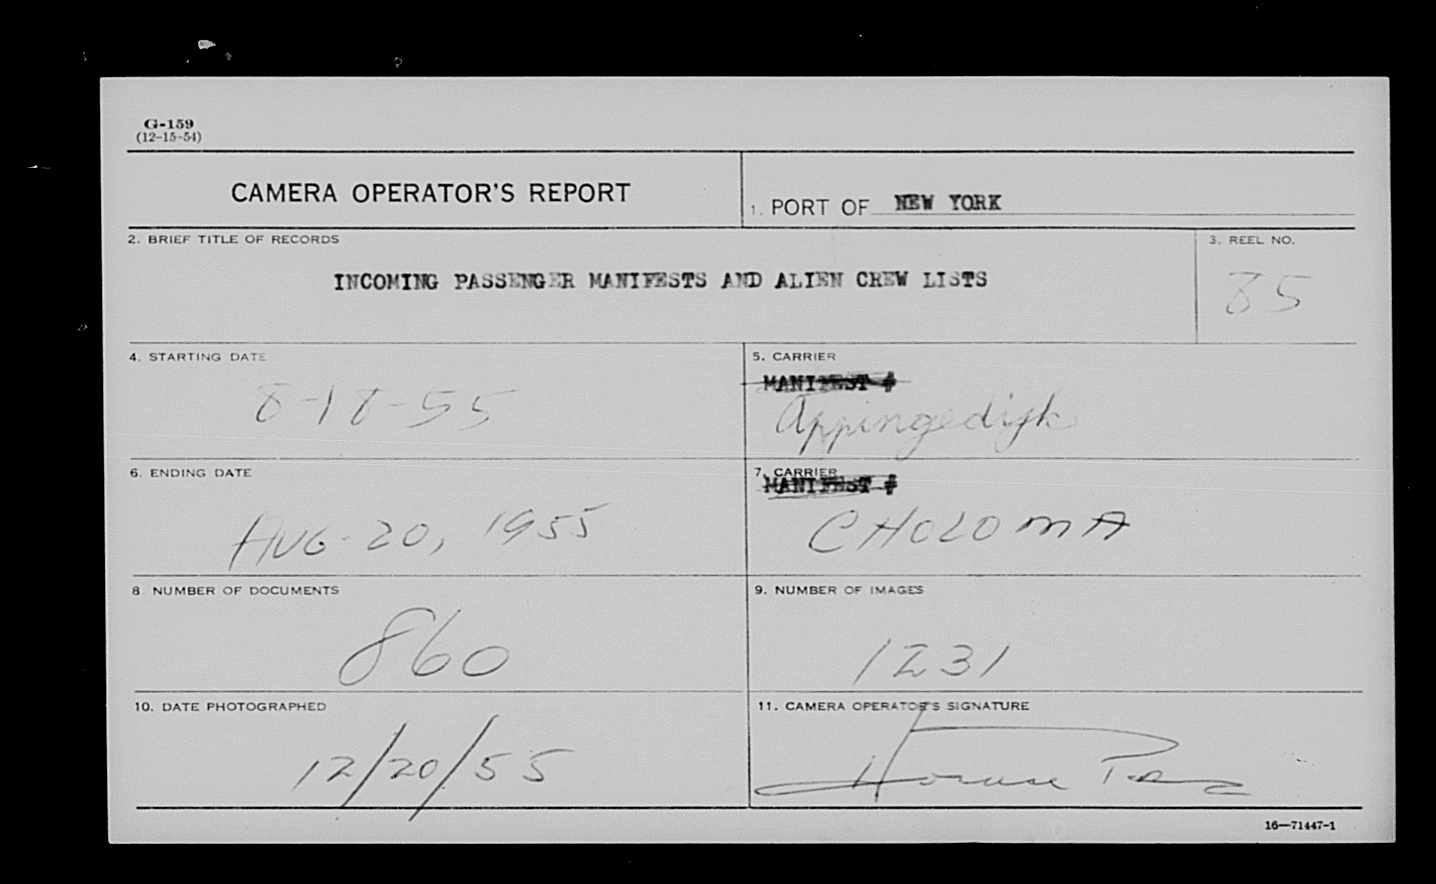 G-159
(12-15-54)
CAMERA OPERATOR'S REPORT
1. PORT OF NEW YORK
2. BRIEF TITLE OF RECORDS
INCOMING PASSENGER MANIFESTS AND ALIEN CREW LISTS
3. REEL NO.
85
4. STARTING DATE
8-18-55
5. CARRIER
MANIFEST #
Appingedijk
6. ENDING DATE
AUG. 20, 1955
7. CARRIER
MANIFEST #
CHOLOMA
8 NUMBER OF DOCUMENTS
860
9. NUMBER OF IMAGES
1231
10. DATE PHOTOGRAPHED
12/20/55
11. CAMERA OPERATOR'S SIGNATURE
16—71447-1